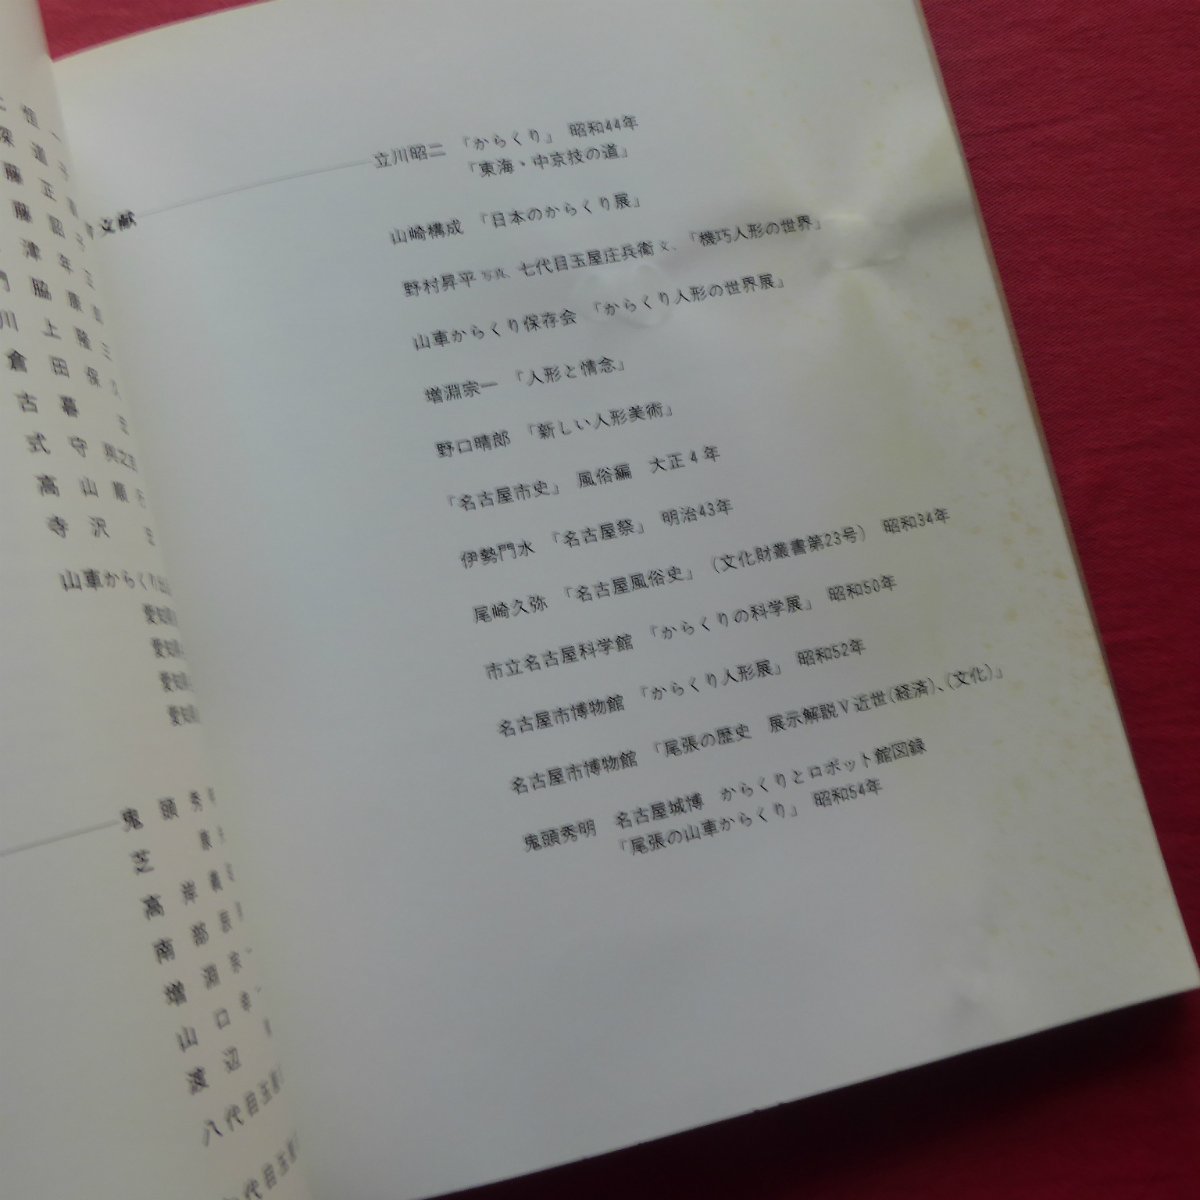 文献
立川昭二 「からくり」 昭和44年
「東海・中京技の道」
山崎構成 「日本のからくり展」
野村昇平 写真、七代目玉屋庄兵衛 文、「機巧人形の世界」
山車からくり保存会 「からくり人形の世界展」
増淵宗一 「人形と情念」
野口晴郎 「新しい人形美術」
「名古屋市史」 風俗編 大正4年
伊勢門水 「名古屋祭」 明治43年
尾崎久弥 「名古屋風俗史」(文化財叢書第23号) 昭和34年
市立名古屋科学館 「からくりの科学展」 昭和50年
名古屋市博物館 「からくり人形展」 昭和52年
名古屋市博物館 「尾張の歴史 展示解説V近世(経済)、(文化)」
鬼頭秀明 名古屋城博 からくりとロボット館図録
「尾張の山車からくり」 昭和54年
藤正
藤昭
津年
門脇
川上隆三
倉田保久
古暮
式守
高山順
寺沢
山車からくり
愛知
愛知
愛知
愛知
鬼頭秀
芝
高岸
南部
増淵宗一
山口
渡辺
八代目玉